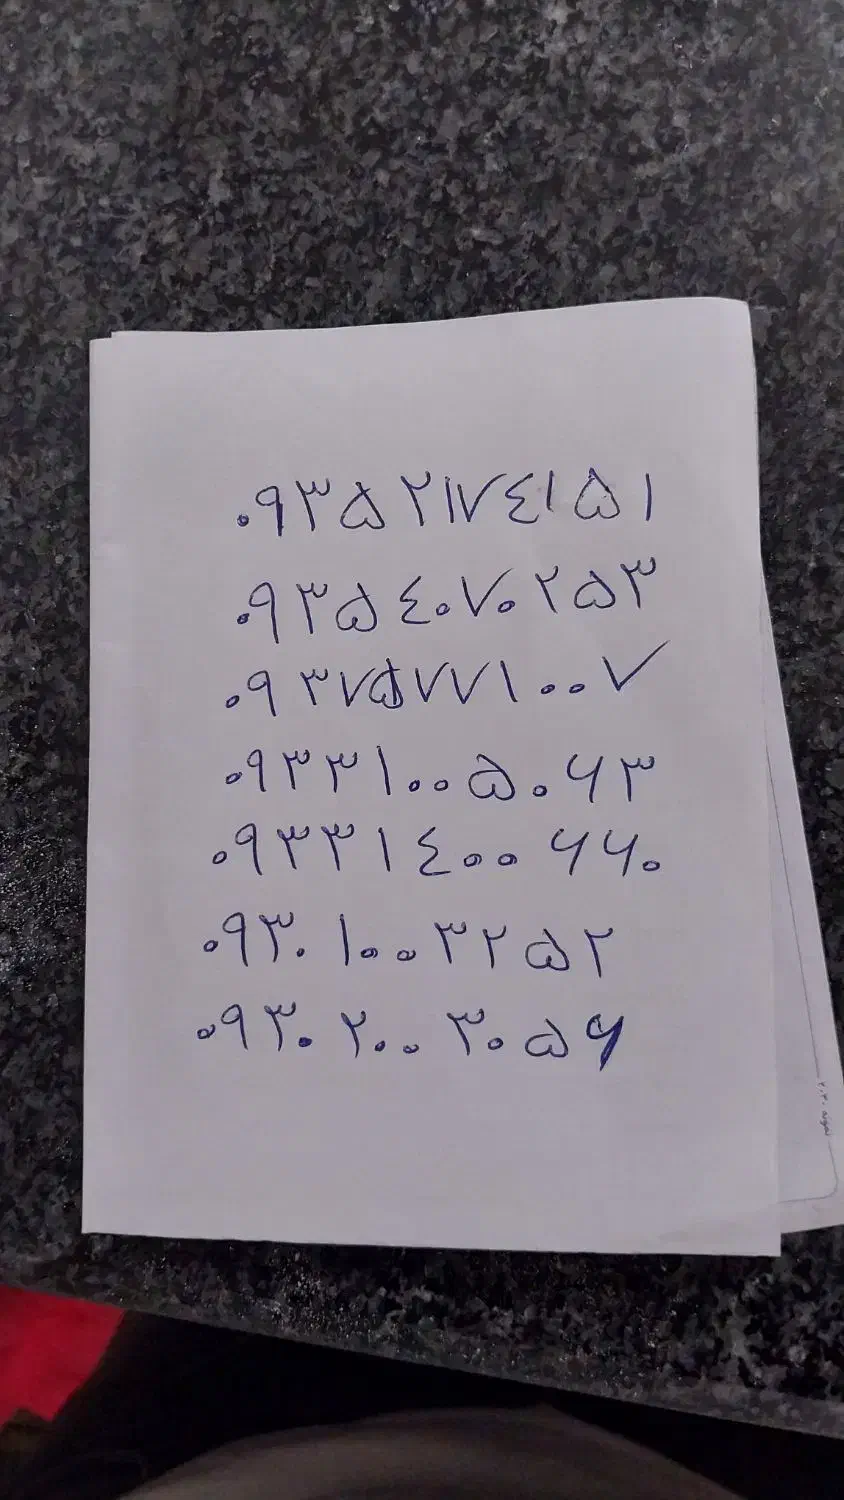 ۰۹۳۵ ۲۱۷۴۱۵۱
۰۹۳۵ ۴۰۷۰۲۵۳
۰۹۳۷۵۷۷۱۰۰۷
۰۹۳۳۱۰۰۵۰۶۳
۰۹۳۳۱۴۰۰ ۶۶۰
۰۹۳۰ ۱۰۰۳۲۵۲
۰۹۳۰ ۲۰۰ ۳۰۵۶
نمونه ۲۰۲